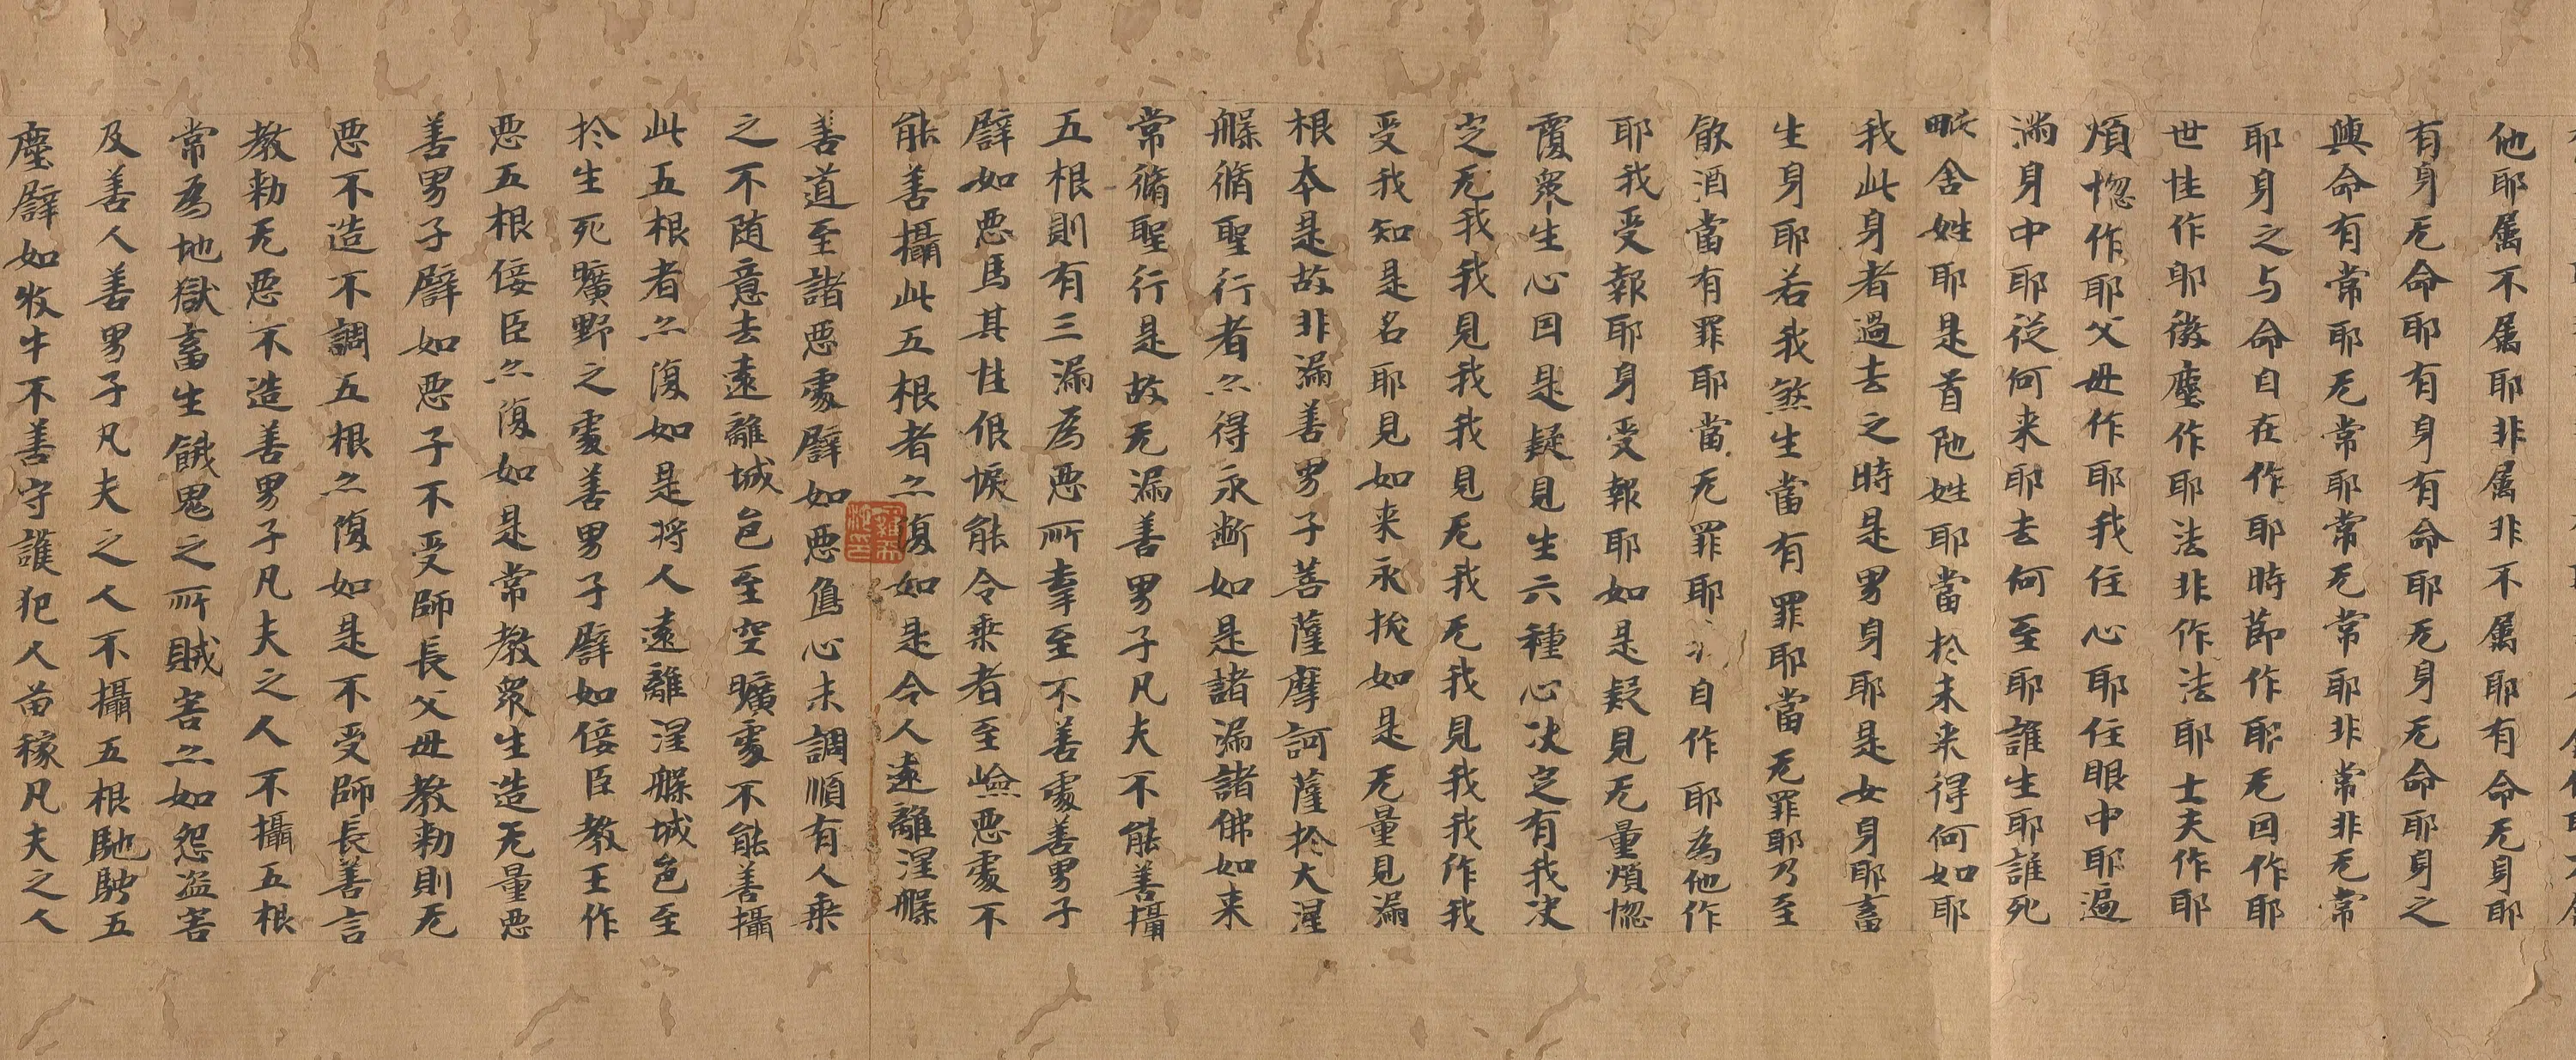 他耶属不属耶非属非不属耶有命无身耶
有身无命耶有身有命耶无身无命耶身之
與命有常耶无常耶常无常耶非常非无常
耶身之与命自在作耶時節作耶无因作耶
世性作耶微塵作耶法非作法耶士夫作耶
煩惚作耶父母作耶我住心耶住眼中耶遍
滿身中耶從何来耶去何至耶誰生耶誰死
舍姓耶是首陁姓耶當扵未来得何如耶
我此身者過去之時是男身耶是女身耶畜
生身耶若我煞生當有罪耶當无罪耶乃至
飲酒當有罪耶當无罪耶耶自作耶為他作
耶我受報耶身受報耶如是疑見无量煩惚
覆衆生心因是疑見生六種心决定有我决
定无我我見我我見无我无我見我我作我
受我知是名耶見如来永拔如是无量見漏
根本是故非漏善男子菩薩摩訶薩扵大涅
槃脩聖行者亦得永断如是諸漏諸佛如来
常脩聖行是故无漏善男子凡夫不能善攝
五根則有三漏為悪所牽至不善處善男子
譬如悪馬其性佷悷能令乘者至嶮悪處不
能善攝此五根者亦復如是令人遠離涅槃
善道至諸悪處譬如悪象心未調順有人乘
之不随意去遠離城邑至空曠處不能善攝
此五根者亦復如是将人遠離涅槃城邑至
扵生死曠野之處善男子譬如佞臣教王作
悪五根佞臣亦復如是常教衆生造无量悪
善男子譬如悪子不受師長父母教勅則无
悪不造不調五根亦復如是不受師長善言
教勅无悪不造善男子凡夫之人不攝五根
常為地獄畜生餓鬼之所賊害亦如怨盗害
及善人善男子凡夫之人不攝五根馳騁五
塵譬如牧牛不善守護犯人苗稼凡夫之人